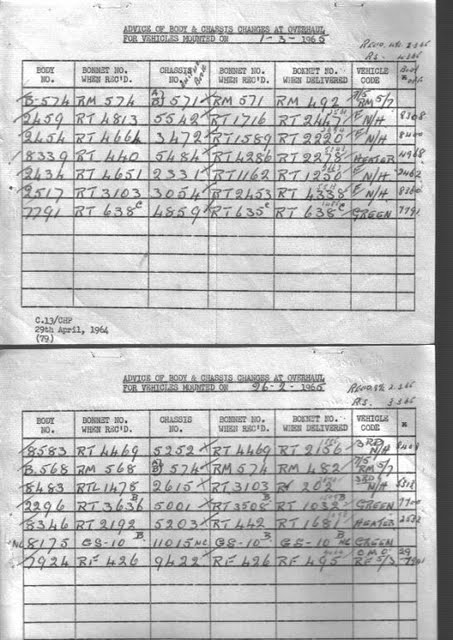 ADVICE OF BODY & CHASSIS CHANGES AT OVERHAUL
FOR VEHICLES MOUNTED ON 1-3-1965
BODY NO. BONNET NO. WHEN REC'D. CHASSIS NO. BONNET NO. WHEN REC'D. BONNET NO. WHEN DELIVERED VEHICLE CODE
B-574 RM 574 571 RM 571 RM 492 RM 5/7
2459 RT 4813 5542 RT 1716 RT 2447 N/H 8308
2454 RT 4664 3472 RT 1589 RT 2220 N/H 8400
8339 RT 440 5484 RT 4286 RT 2278 HEATER 4968
2434 RT 4651 2331 RT 1162 RT 1256 N/H 2462
2517 RT 3103 3054 RT 2453 RT 4338 N/H
7791 RT 638 C 4859 RT 635 C RT 638 C GREEN 7791
C.13/CHP
29th April, 1964
(79)
ADVICE OF BODY & CHASSIS CHANGES AT OVERHAUL
FOR VEHICLES MOUNTED ON 26-2-1965
BODY NO. BONNET NO. WHEN REC'D. CHASSIS NO. BONNET NO. WHEN REC'D. BONNET NO. WHEN DELIVERED VEHICLE CODE
8583 RT 4469 5252 RT 4469 RT 2156 3RD N/H
B.568 RM 568 574 RM 574 RM 482 RM 5/7
8483 RTL 1478 2615 RT 3103 RT 202 N/H
2296 RT 3636 B 5001 RT 3508 B RT 1032 B GREEN 7700
8346 RT 2192 5203 RT 442 RT 1681 HEATER
NC 8175 GS-10 B 11015 NC GS-10 B GS-10 B NC GREEN
7924 RF 426 9422 RF 426 RF 495 O.M.O. RF 5/3